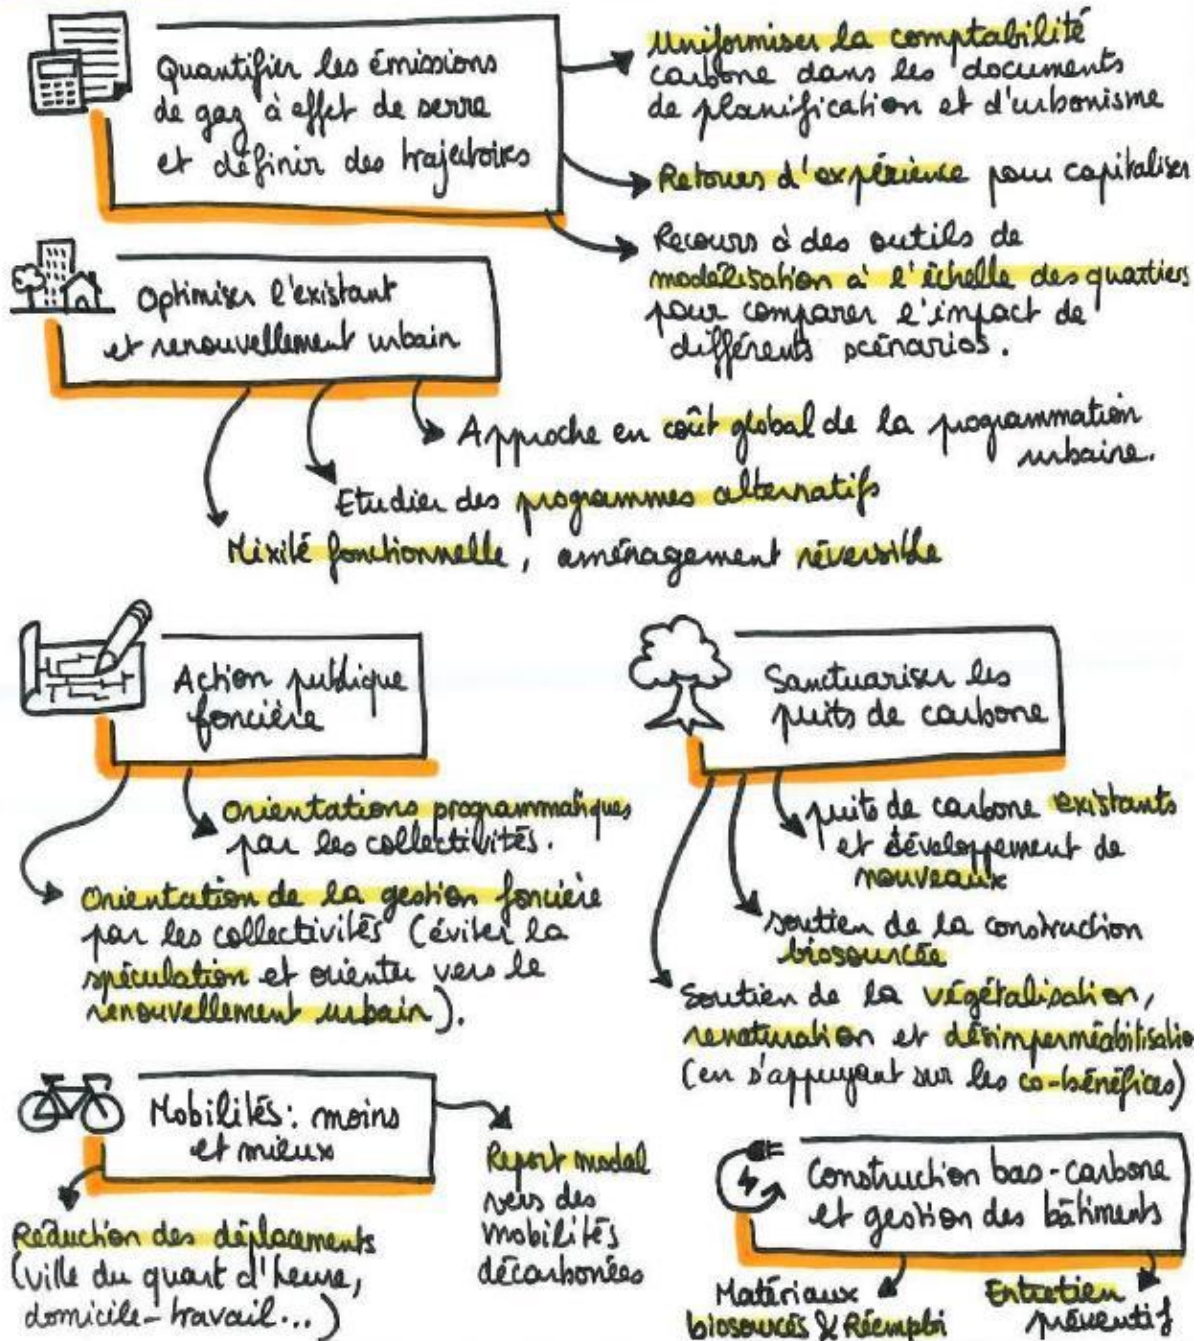 Quantifier les émissions
de gaz à effet de serre
et définir des trajectoires
Uniformiser la comptabilité
carbone dans les documents
de planification et d'urbanisme
Retours d'expérience pour capitaliser
Recours à des outils de
modélisation à l'échelle des quartiers
pour comparer l'impact de
différents scénarios.
Optimiser l'existant
et renouvellement urbain
Approche en coût global de la programmation
urbaine.
Etudier des programmes alternatifs
Mixité fonctionnelle, aménagement réversible
Action publique
foncière
Orientations programmatiques
par les collectivités.
Orientation de la gestion foncière
par les collectivités (éviter la
spéculation et orienter vers le
renouvellement urbain).
Sanctuariser les
puits de carbone
puits de carbone existants
et développement de
nouveaux
soutien de la construction
biosourcée
Soutien de la végétalisation,
renaturation et désimperméabilisatio
(en s'appuyant sur les co-bénéfices)
Mobilités: moins
et mieux
Report modal
vers des
mobilités
décarbonées
Réduction des déplacements
(ville du quart d'heure,
domicile-travail...)
Construction bas-carbone
et gestion des bâtiments
Matériaux
biosourcés & Réemploi
Entretien
préventif